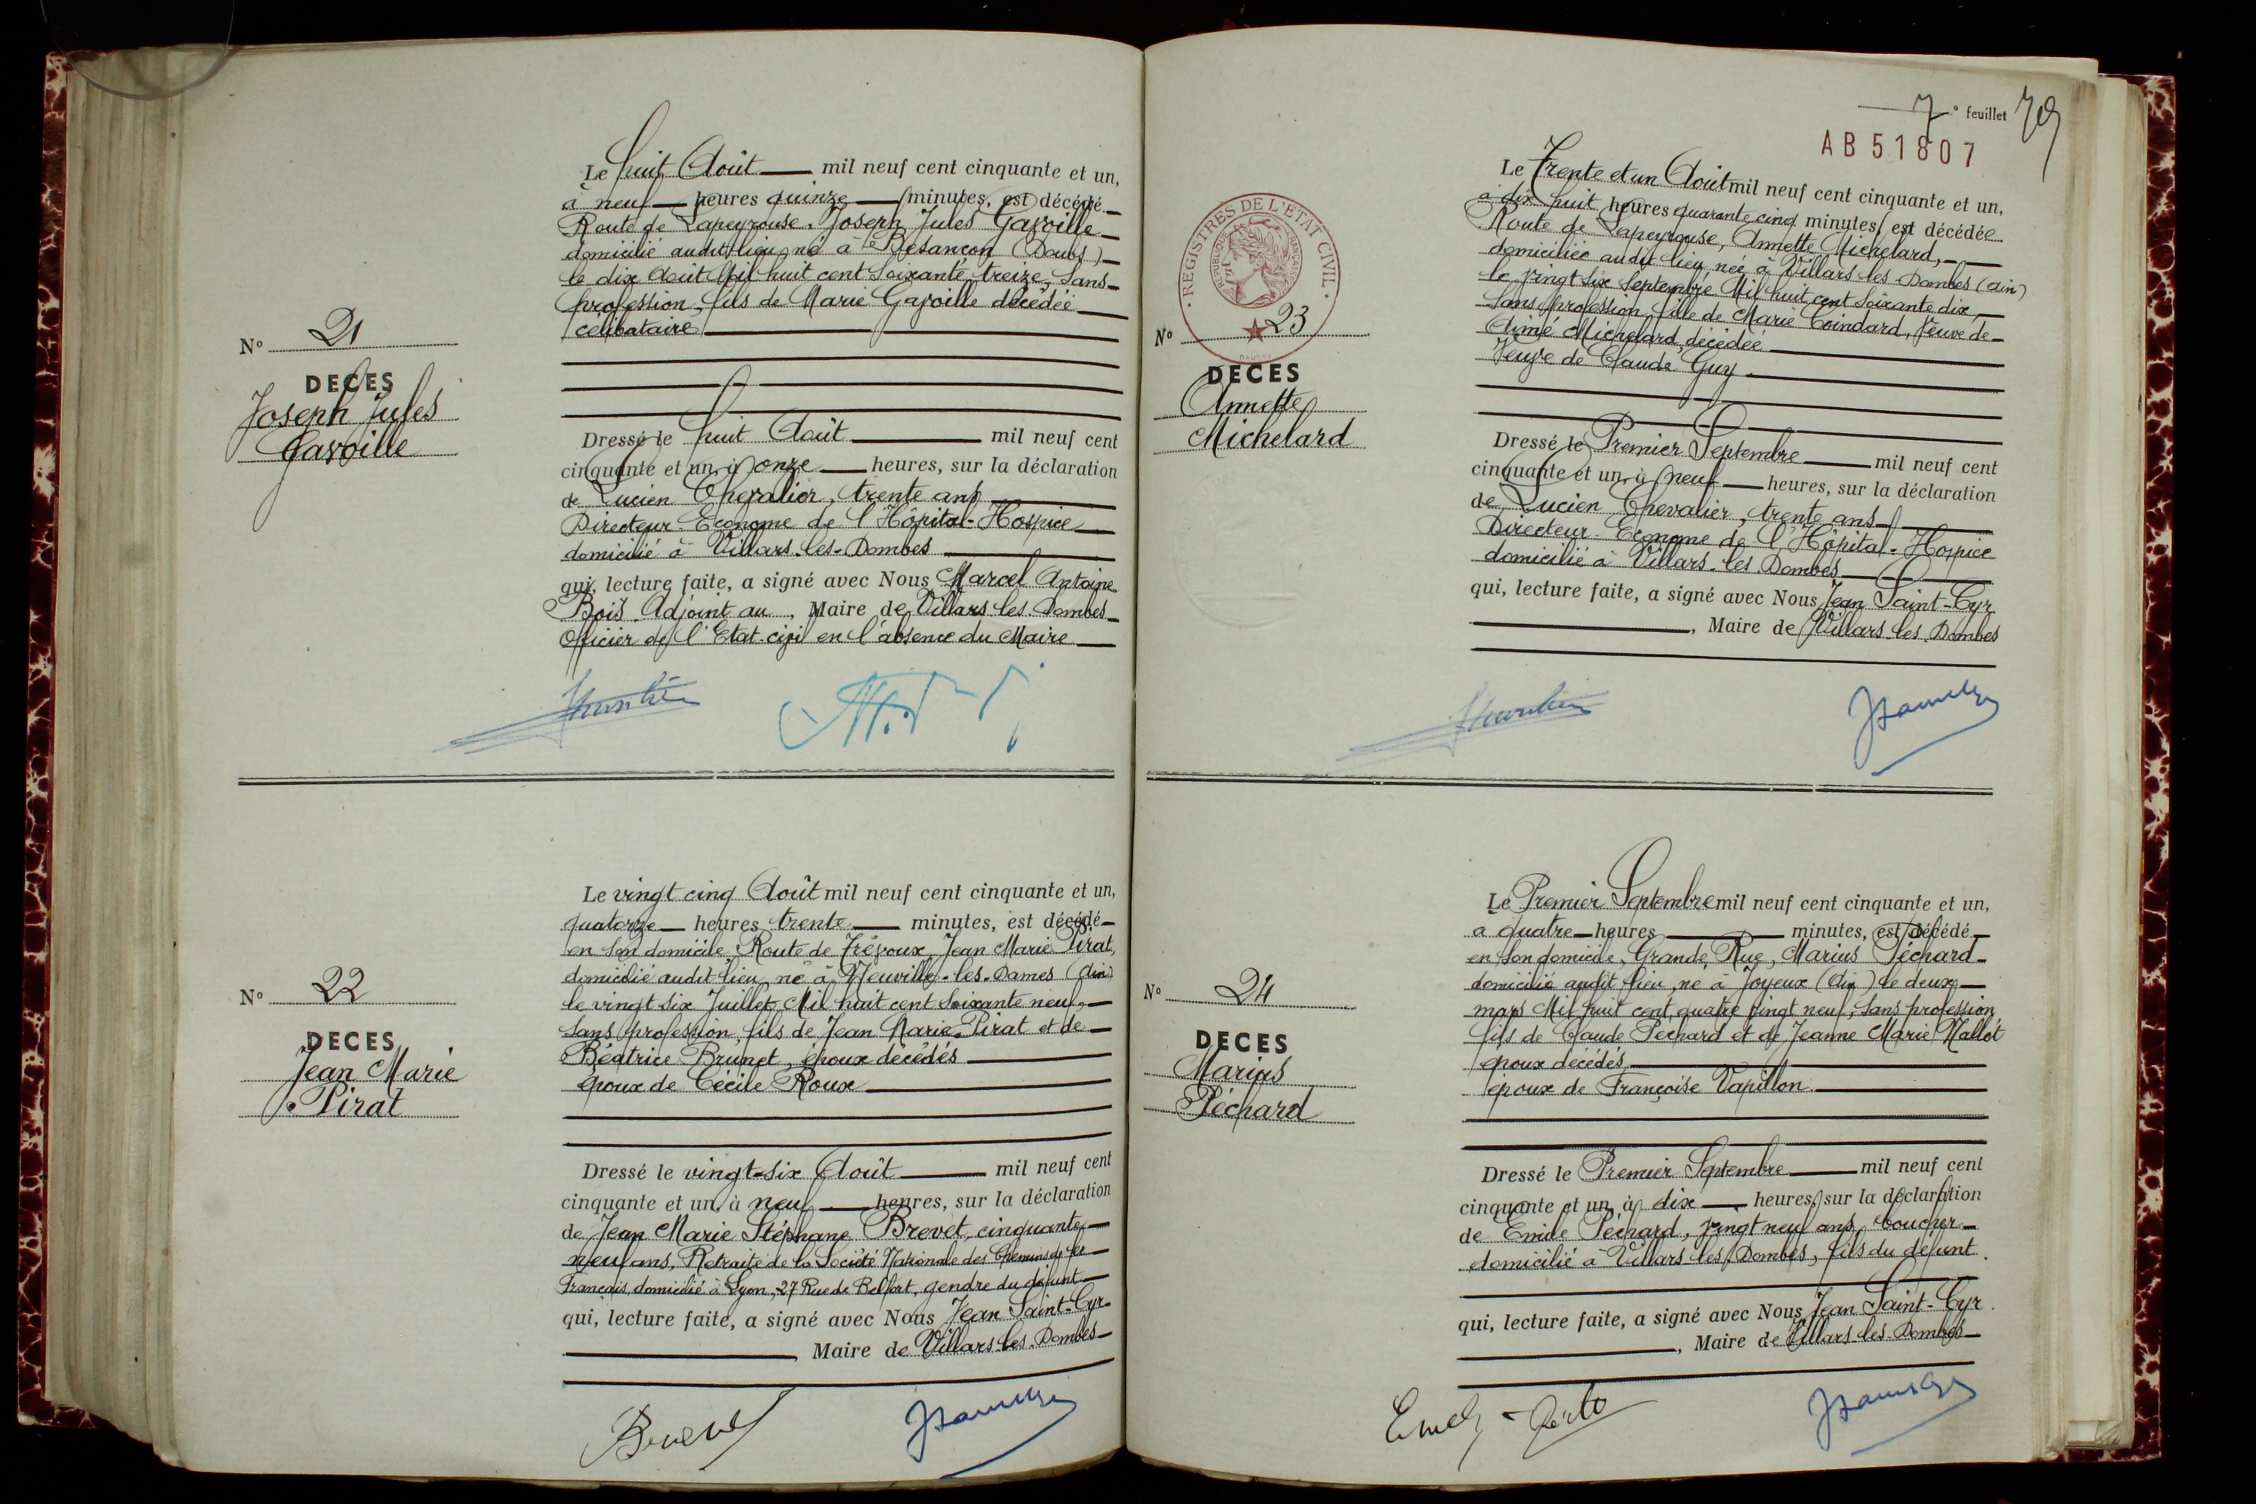 Le huit Août mil neuf cent cinquante et un,
à neuf heures quinze minutes, est décédé
Route de Lapeyrouse, Joseph Jules Gavoille
domicilié audit lieu, né à Besançon (Doubs)
le dix Août Mil huit cent soixante treize, sans
profession, fils de Marie Gavoille décédée
célibataire
N° 21
DECES
Joseph Jules
Gavoille
Dressé le huit Août mil neuf cent
cinquante et un, à onze heures, sur la déclaration
de Lucien Chevalier, trente ans
Directeur-Econome de l'Hôpital-Hospice
domicilié à Villars-les-Dombes
qui, lecture faite, a signé avec Nous Marcel Antoine
Bois, Adjoint au, Maire de Villars-les-Dombes
Officier de l'Etat-civil en l'absence du Maire
Le vingt cinq Août mil neuf cent cinquante et un,
quatorze heures trente minutes, est décédé
en son domicile, Route de Trévoux, Jean Marie Pirat,
domicilié audit lieu, né à Neuville-les-Dames (Ain)
le vingt six Juillet Mil huit cent soixante neuf,
sans profession, fils de Jean Marie Pirat et de
Béatrice Brunet, époux décédés
époux de Cécile Roux
N° 22
DECES
Jean Marie
Pirat
Dressé le vingt-six Août mil neuf cent
cinquante et un, à neuf heures, sur la déclaration
de Jean Marie Stéphane Brevet, cinquante
neuf ans, Retraité de la Société Nationale des Chemins de fer
Français, domicilié à Lyon, 27 Rue de Belfort, gendre du défunt
qui, lecture faite, a signé avec Nous Jean Saint-Cyr
, Maire de Villars-les-Dombes
Brevet
7° feuillet 79
AB51807
Le Trente et un Août mil neuf cent cinquante et un,
à dix huit heures quarante cinq minutes, est décédée
Route de Lapeyrouse, Annette Michelard,
domiciliée audit lieu, née à Villars-les-Dombes (Ain)
le vingt six Septembre Mil huit cent soixante dix,
sans profession, fille de Marie Coindard, veuve de
Aimé Michelard, décédée
Veuve de Claude Guy
REGISTRES DE L'ETAT CIVIL
REPUBLIQUE FRANÇAISE
N° 23
DECES
Annette
Michelard
Dressé le Premier Septembre mil neuf cent
cinquante et un, à neuf heures, sur la déclaration
de Lucien Chevalier, trente ans
Directeur-Econome de l'Hôpital-Hospice
domicilié à Villars-les Dombes
qui, lecture faite, a signé avec Nous Jean Saint-Cyr
, Maire de Villars-les-Dombes
Le Premier Septembre mil neuf cent cinquante et un,
à quatre heures minutes, est décédé
en son domicile, Grande Rue, Marius Péchard
domicilié audit lieu, né à Joyeux (Ain) le deux
mars Mil huit cent quatre vingt neuf, sans profession,
fils de Claude Péchard et de Jeanne Marie Mallot
époux décédés
époux de Françoise Vapillon
N° 24
DECES
Marius
Péchard
Dressé le Premier Septembre mil neuf cent
cinquante et un, à dix heures, sur la déclaration
de Emile Péchard, vingt neuf ans, boucher
domicilié à Villars-les-Dombes, fils du défunt.
qui, lecture faite, a signé avec Nous, Jean Saint-Cyr
, Maire de Villars-les-Dombes